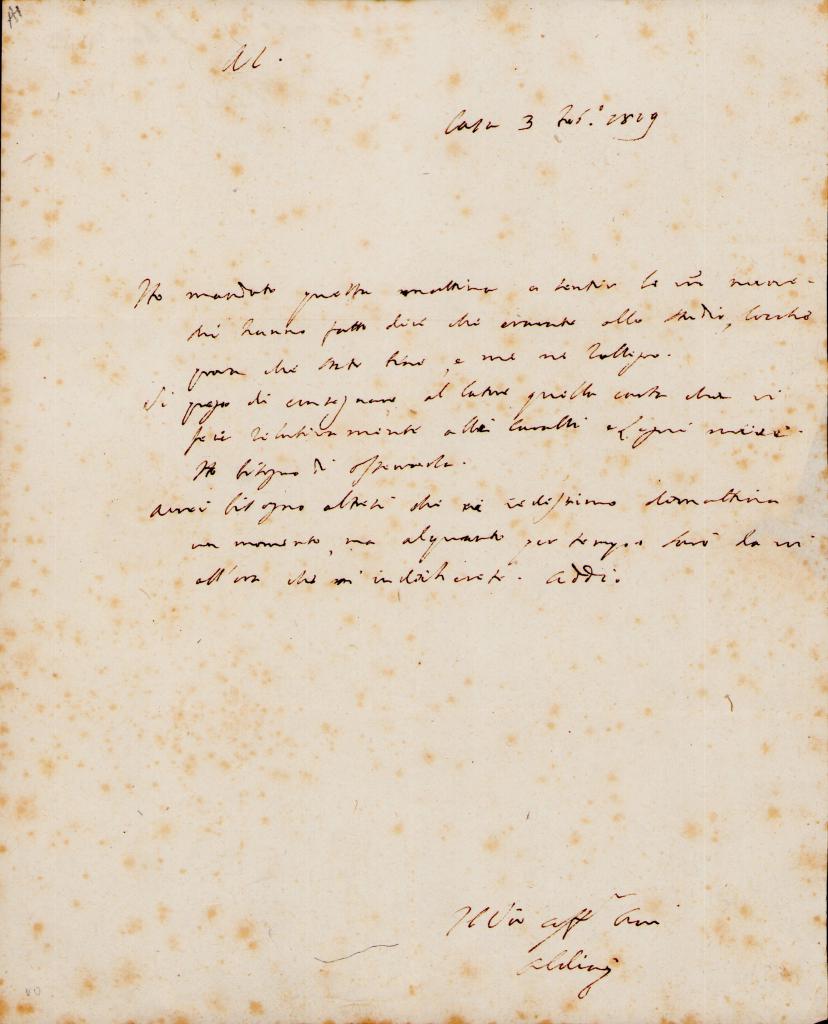 A C.
Casa 3 Feb.º 1809
Ho mandato questa mattina a sentir le nuove
mi hanno fatto dire che eravate allo studio, locchè
prova che state bene, e me ne rallegro.
Vi prego di consegnare al latore quella carta che vi
feci relativamente alli cavalli e legni miei.
Ho bisogno di osservarla.
Avrei bisogno altresì che ci vedessimo domattina
un momento, ma alquanto per tempo. Sarò da voi
all'ora che m'indicherete. Addio
Il Vro aff
Aldini